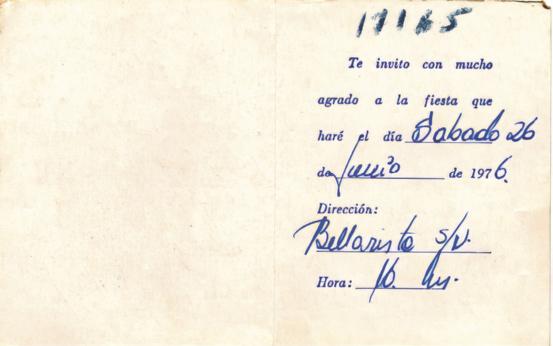 17165
Te invito con mucho
agrado a la fiesta que
haré el día Sabado 26
de Junio de 1976.
Dirección:
Bellavista s/n.
Hora: 16. hs.